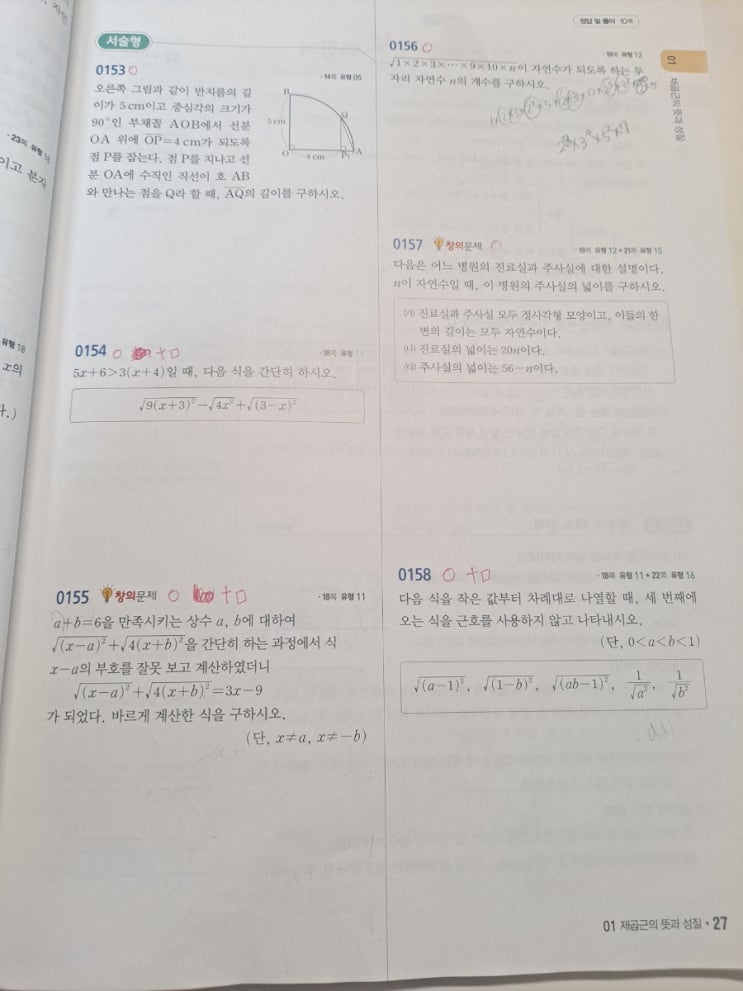 정답 및 풀이 10쪽
서술형
0153
· 14쪽 유형 05
오른쪽 그림과 같이 반지름의 길
이가 5 cm이고 중심각의 크기가
90°인 부채꼴 AOB에서 선분
OA 위에 OP=4 cm가 되도록
점 P를 잡는다. 점 P를 지나고 선
분 OA에 수직인 직선이 호 AB
와 만나는 점을 Q라 할 때, AQ의 길이를 구하시오.
B
Q
5 cm
O
4 cm
P
A
0154
· 18쪽 유형 11
5x+6>3(x+4)일 때, 다음 식을 간단히 하시오.
√9(x+3)²-√4x²+√(3-x)²
0155 창의문제
· 18쪽 유형 11
a+b=6을 만족시키는 상수 a, b에 대하여
√(x-a)²+√4(x+b)²을 간단히 하는 과정에서 식
x-a의 부호를 잘못 보고 계산하였더니
√(x-a)²+√4(x+b)²=3x-9
가 되었다. 바르게 계산한 식을 구하시오.
(단, x≠a, x≠-b)
0156
· 19쪽 유형 12
√1×2×3×⋯×9×10×n이 자연수가 되도록 하는 두
자리 자연수 n의 개수를 구하시오.
2⁸×3⁴×5²×7
0157 창의문제
· 19쪽 유형 12+21쪽 유형 15
다음은 어느 병원의 진료실과 주사실에 대한 설명이다.
n이 자연수일 때, 이 병원의 주사실의 넓이를 구하시오.
㈎ 진료실과 주사실 모두 정사각형 모양이고, 이들의 한
변의 길이는 모두 자연수이다.
㈏ 진료실의 넓이는 20n이다.
㈐ 주사실의 넓이는 56-n이다.
0158
· 18쪽 유형 11+22쪽 유형 16
다음 식을 작은 값부터 차례대로 나열할 때, 세 번째에
오는 식을 근호를 사용하지 않고 나타내시오.
(단, 0<a<b<1)
√(a-1)², √(1-b)², √(ab-1)², 1/√a², 1/√b²
-a+1
01
제곱근의 뜻과 성질
01 제곱근의 뜻과 성질 · 27
· 23쪽 유형 18
이고 분자
유형 18
x의